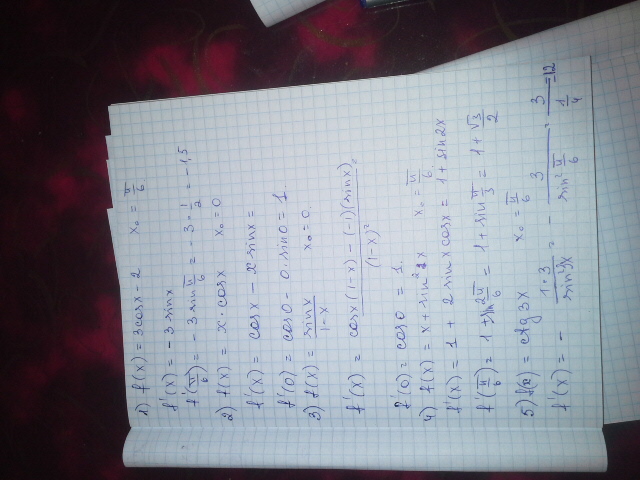 1) f(x) = 3cosx - 2 x₀ = π/6
f'(x) = -3sinx
f'(π/6) = -3sin π/6 = -3·1/2 = -1,5
2) f(x) = x·cosx x₀ = 0
f'(x) = cosx - x·sinx =
f'(0) = cos0 - 0·sin0 = 1.
3) f(x) = sinx/(1-x) x₀ = 0.
f'(x) = (cosx(1-x) - (-1)(sinx))/(1-x)² =
f'(0) = cos0 = 1.
4) f(x) = x + sin²x x₀ = π/6.
f'(x) = 1 + 2sinxcosx = 1 + sin2x
f'(π/6) = 1 + sin 2π/6 = 1 + sin π/3 = 1 + √3/2
5) f(x) = ctg3x x₀ = π/6
f'(x) = - 1·3/sin²3x = - 3/sin² π/6 = 3/(1/4) = -12